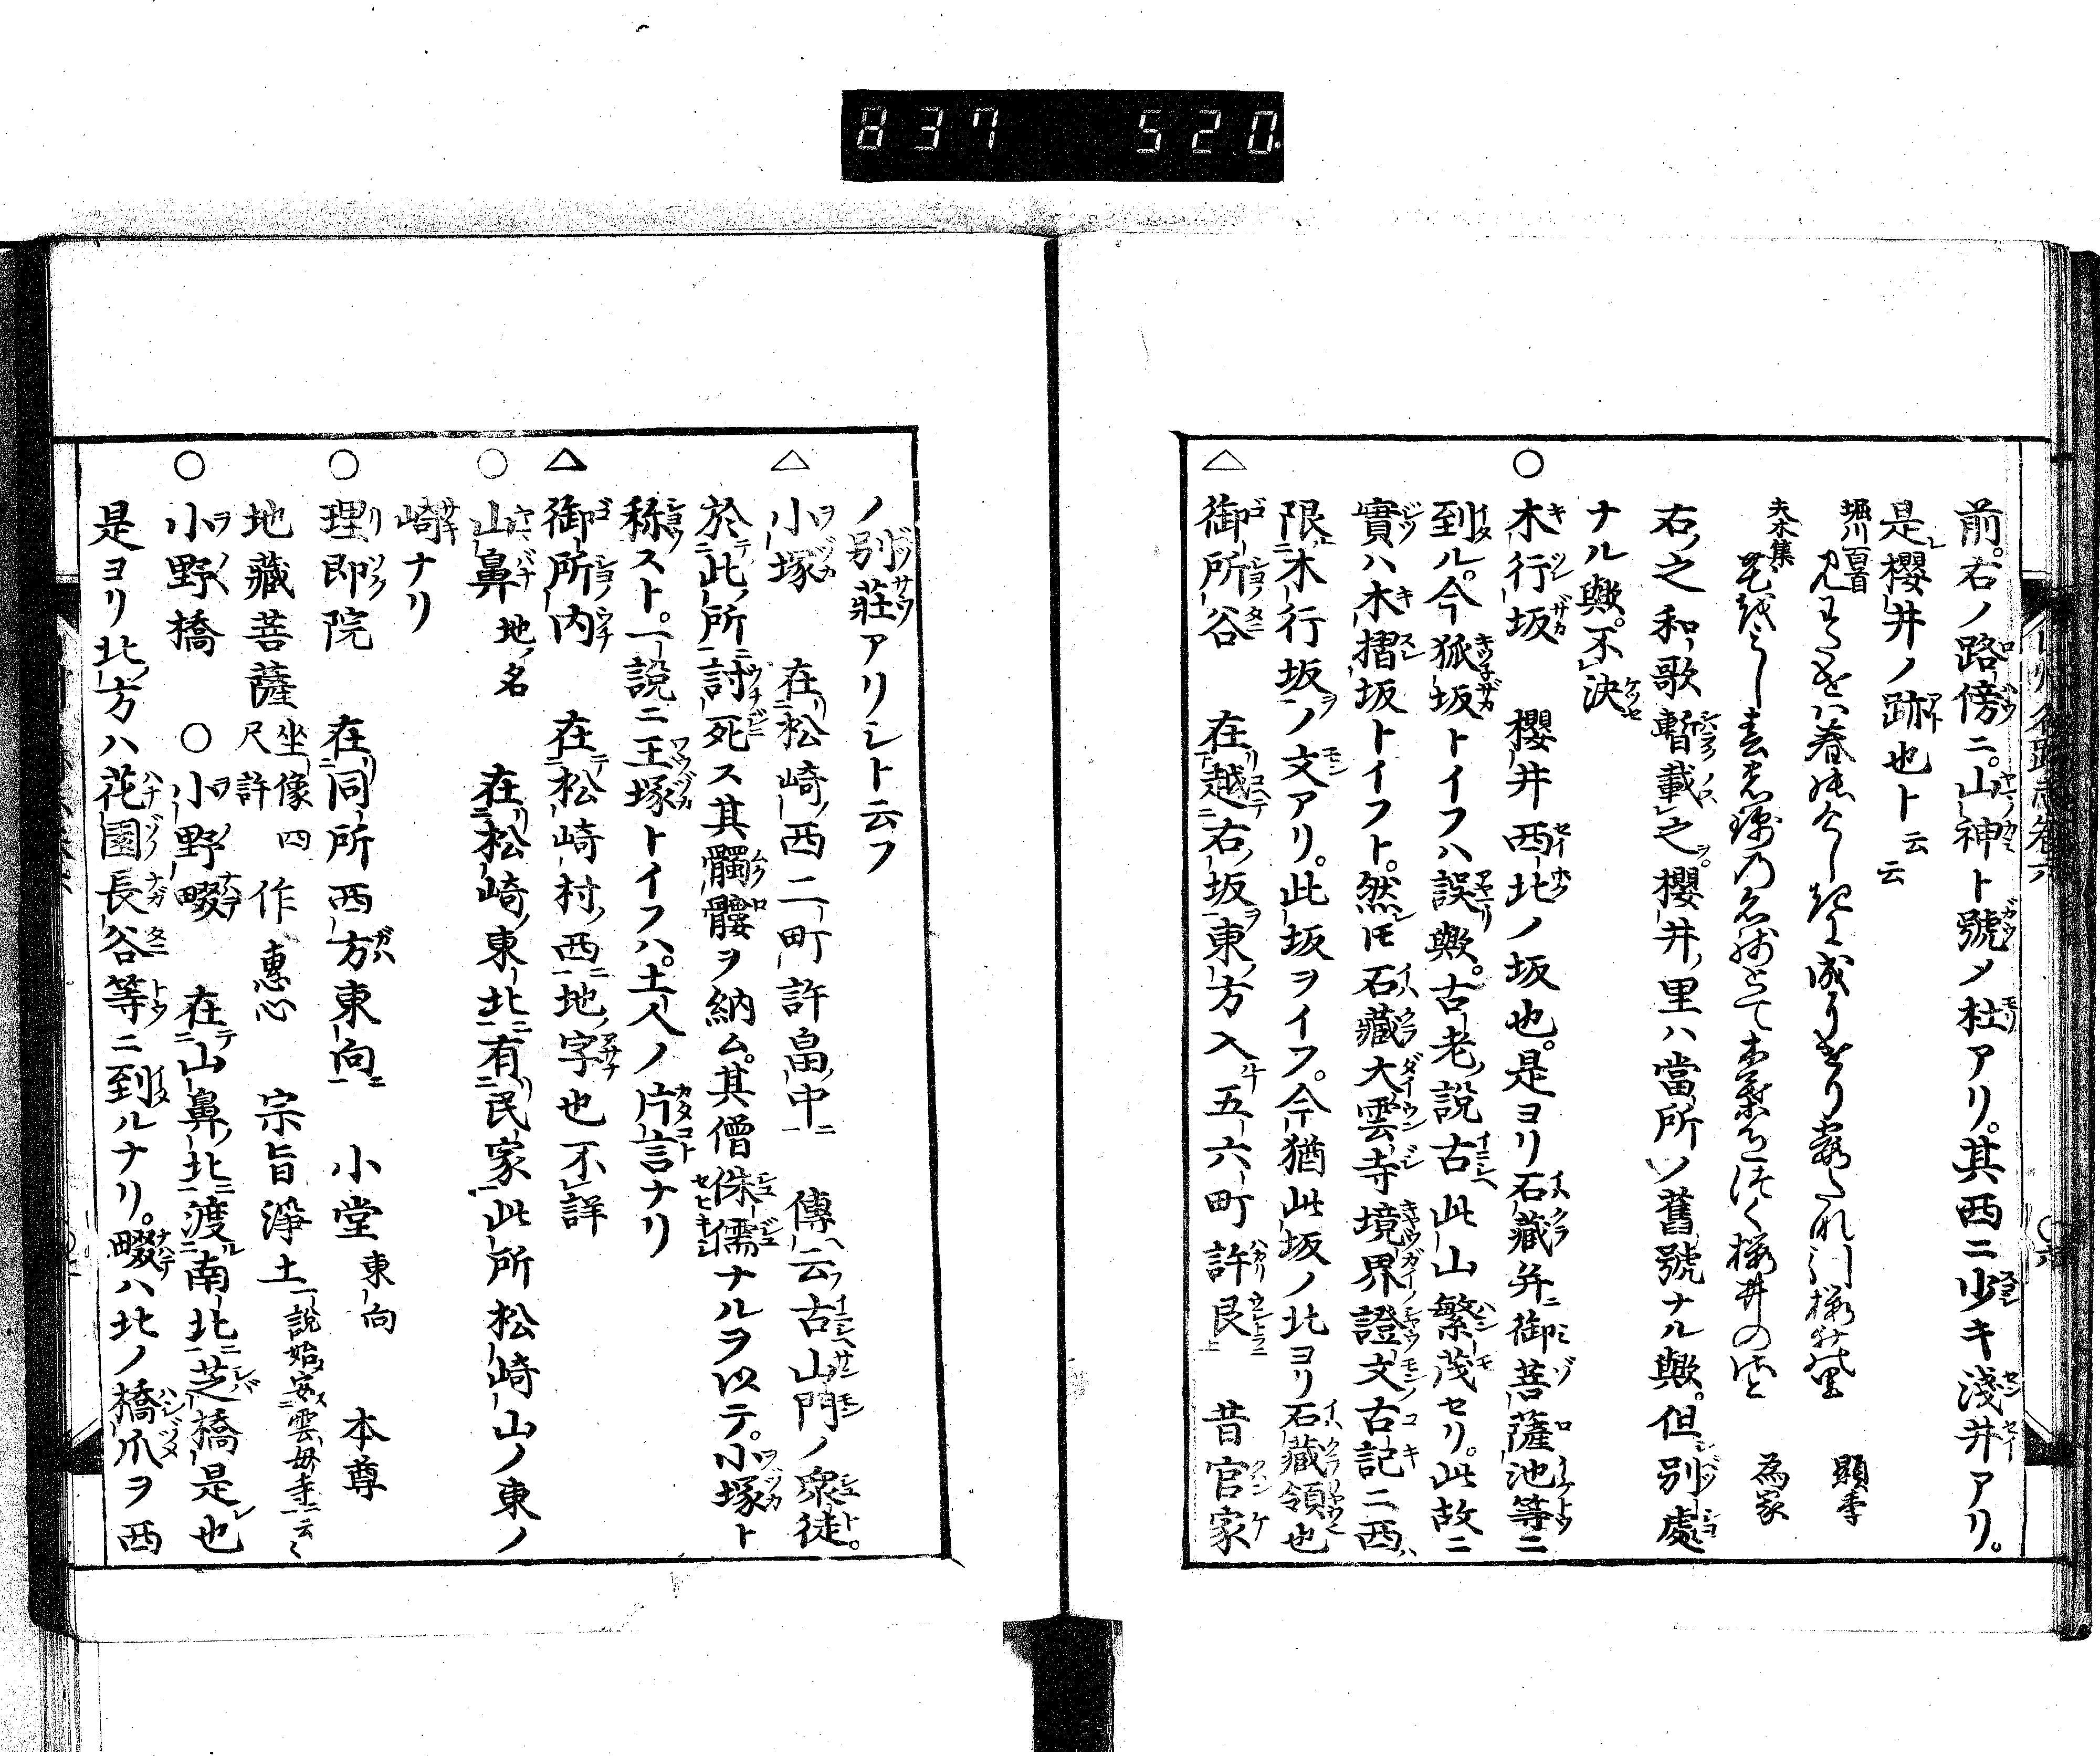 837 520.
前。右ノ路傍ニ。山神ト號メ杜アリ。其西ニ少キ淺井アリ。
是櫻井ノ跡也ト云云
堀川百首
顯季
夫木集
為家
右之和歌暫載之。櫻井里ハ當所ノ舊號ナル歟。但別處
ナル歟。不決
○木行坂 櫻井西北ノ坂也。是ヨリ石藏并御菩薩池等ニ
到ル。今狐坂トイフハ誤歟。古老説古此山繁茂セリ。此故ニ
實ハ木摺坂トイフト。然𪜈石藏大雲寺境界證文古記ニ西ハ
限木行坂ノ文アリ。此坂ヲイフ。今猶此坂ノ北ヨリ石藏領也
△御所谷 在越右坂東方入五六町許艮上 昔官家
ノ別莊アリシト云フ
△小塚 在松崎西二町許畠中 傳云古山門ノ衆徒。
於此所討死ス其髑髏ヲ納ム。其僧侏儒ナルヲ以テ。小塚ト
称スト。一説ニ王塚トイフハ。土人ノ片言ナリ
△御所内 在松崎村西地字也不詳
○山鼻地名 在松崎東北有民家此所松崎山ノ東ノ
崎ナリ
○理即院 在同所西方東向 小堂東向 本尊
地藏菩薩坐像四尺許 作惠心 宗旨淨土一説始安雲母寺云々
○小野橋 ○小野畷 在山鼻北渡南北芝橋是也
是ヨリ北方ハ花園長谷等ニ到ルナリ。畷ハ北ノ橋爪ヲ西